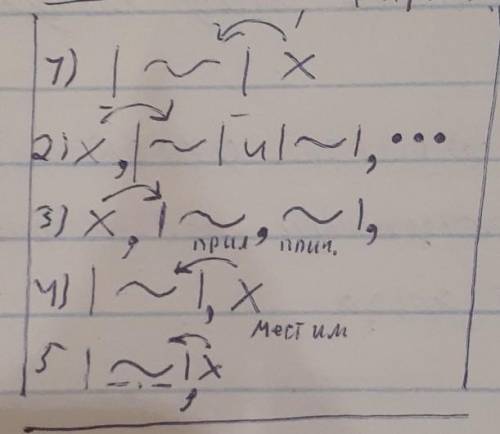 1) | ~ | х
2) х, | ~ | и | ~ |, •••
3) х, | ~, ~ |,
прил. прич.
4) | ~ |, х
мест им
5 | ~ |, х